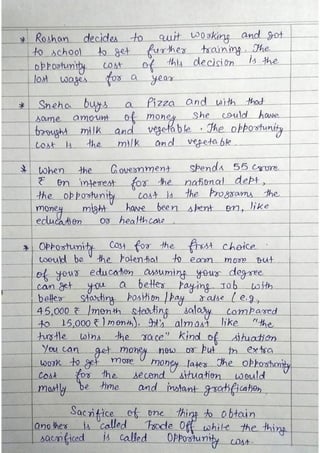 * Roshan decides to quit working and got
to school to get further training. The
opportunity cost of this decision is the
lost wages for a year
* Sneha buys a Pizza and with that
same amount of money she could have
brought milk and vegetable. The opportunity
cost is the milk and vegetable.
* When the Government spends 55 crore
₹ on interest for the national dept,
the opportunity cost is the programs the
money might have been spent on, like
education or healthcare.
* Opportunity Cost for the first choice
would be the Potential to earn more out
of your education assuming your degree
can get you a better paying Job with
better starting position / pay raise (e.g,
45,000 ₹ /month starting salary compared
to 15,000 ₹ /month). It's almost like "the
turtle wins the race" kind of situation
You can get money now or put in extra
work to get more money later The opportunity
cost for the second situation would
mostly be time and instant gratification.
Sacrifice of one thing to obtain
another is called Trade Off while the thing
sacrificed is called Opportunity cost.